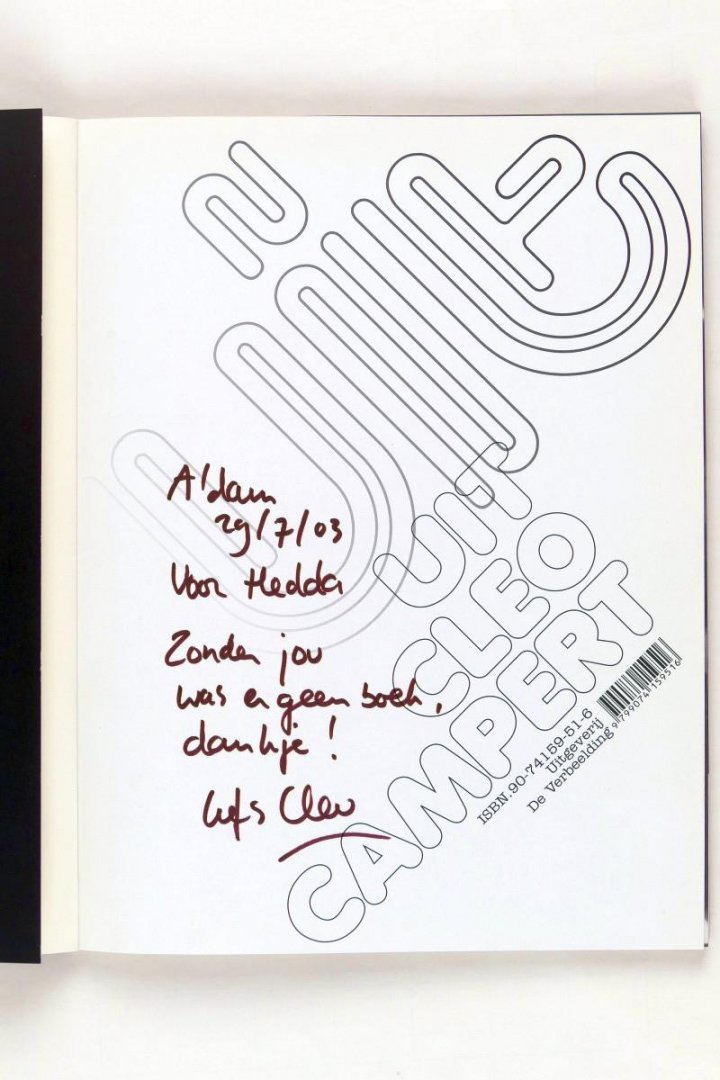 UIT
CLEO
CAMPERT
A'dam
29/7/03
Voor Hedda
Zonder jou
was er geen boek,
dankje!
Liefs Cleo
ISBN.90-74159-51-6
Uitgeverij
De Verbeelding
9 799074 159516